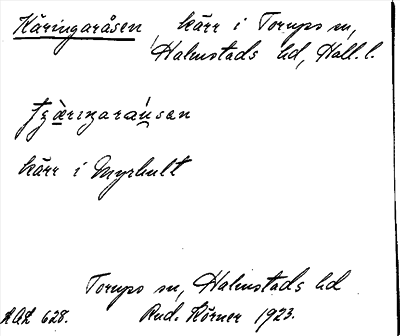 Käringaråsen, kärr i Torups sn,
Halmstads hd, Hall. l.
kärr i Myrhult
Torups sn, Halmstads hd
628. Rud. Körner 1923.